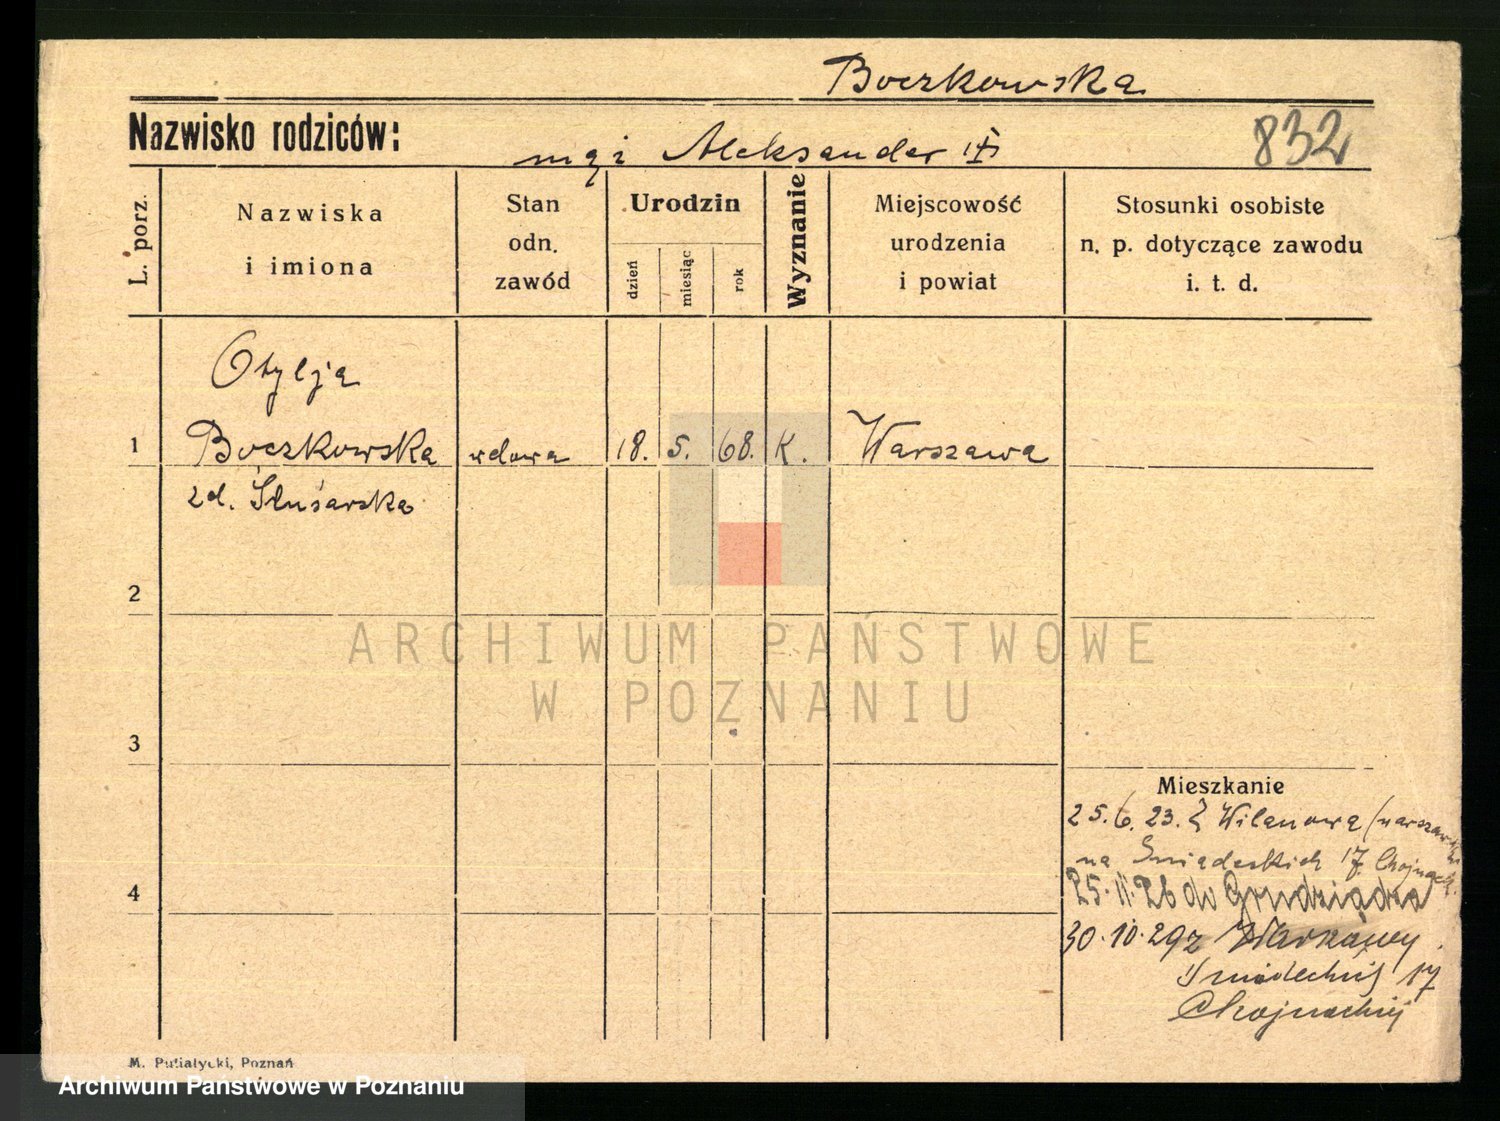 Boczkowska
Nazwisko rodziców:
mąż Aleksander
832
L. porz.
Nazwiska
i imiona
Stan
odn.
zawód
Urodzin
dzień
miesiąc
rok
Wyznanie
Miejscowość
urodzenia
i powiat
Stosunki osobiste
n. p. dotyczące zawodu
i. t. d.
Otylja
1 Boczkowska wdowa 18. 5. 68. K. Warszawa
zd. Ślusarska
2
3
4
Mieszkanie
25.6.23. z Wilanowa
na Śniadeckich 17.
25.11.26 do Grudziądza
30.10.29 z
Śniadeckich 17
M. Putiatycki, Poznań
ARCHIWUM PAŃSTWOWE
W POZNANIU
Archiwum Państwowe w Poznaniu